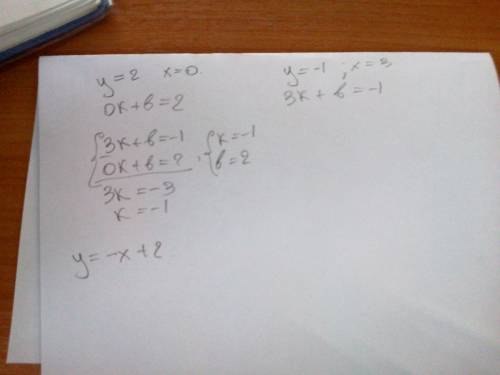 y=2 x=0.
0к+в=2
y=-1 ; x=3
3к+в=-1
{3к+в=-1
0к+в=2
{к=-1
в=2
3к=-3
к=-1
y=-x+2